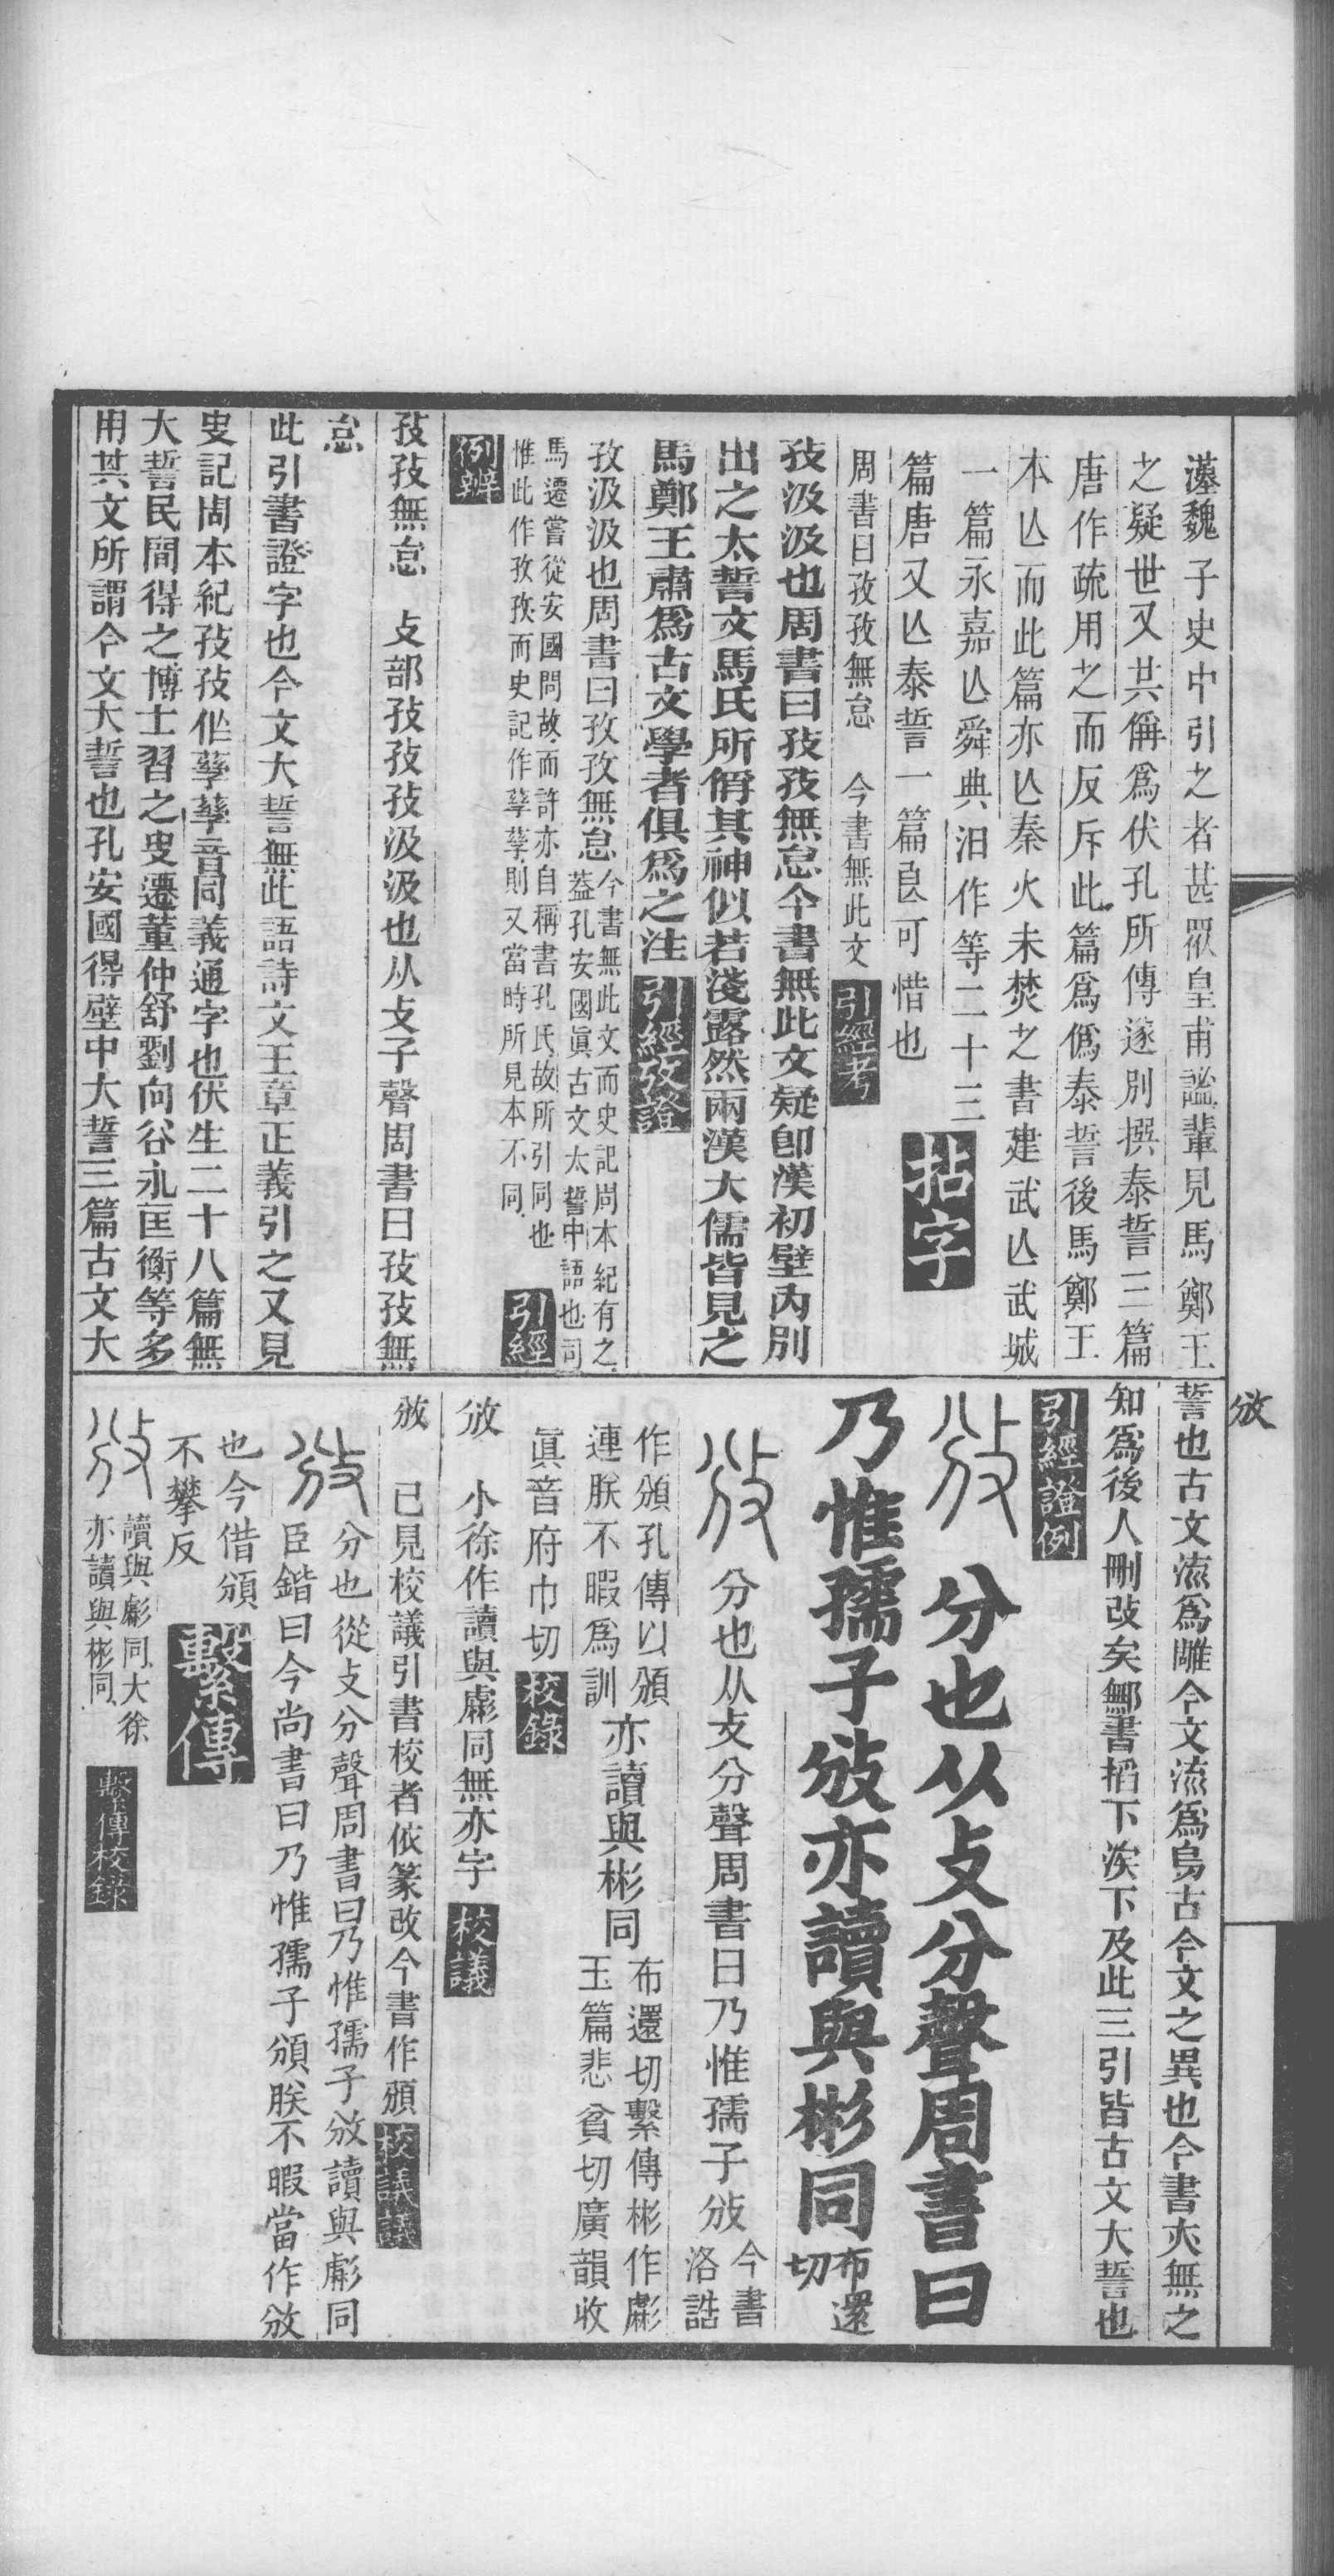 漢魏子史中引之者甚眾皇甫謐輩見馬鄭王
之疑世又其偁爲伏孔所傳遂別撰泰誓三篇
唐作疏用之而反斥此篇爲僞泰誓後馬鄭王
本亾而此篇亦亾秦火未焚之書建武亾武城
一篇永嘉亾舜典汨作等二十三
篇唐又亾泰誓一篇良可惜也 拈字
周書曰孜孜無怠 今書無此文 引經考
孜汲汲也周書曰孜孜無怠今書無此文疑卽漢初壁內別
出之太誓文馬氏所偁其神似若淺露然兩漢大儒皆見之
馬鄭王肅爲古文學者俱爲之注 引經攷證
孜汲汲也周書曰孜孜無怠 今書無此文而史記周本紀有之
葢孔安國眞古文太誓中語也司
馬遷嘗從安國問故而許亦自稱書孔氏故所引同也
惟此作孜孜而史記作孳孳則又當時所見本不同 引經
例辨
孜孜無怠 攴部孜孜孜汲汲也从攴子聲周書曰孜孜無
怠
此引書證字也今文大誓無此語詩文王章正義引之又見
史記周本紀孜孜作孳孳音同義通字也伏生二十八篇無
大誓民閒得之博士習之史遷董仲舒劉向谷永匡衡等多
用其文所謂今文大誓也孔安國得壁中大誓三篇古文大
誓也古文流爲雕今文流爲烏古今文之異也今書夾無之
知爲後人刪改矣鄦書搯下涘下及此三引皆古文大誓也
引經證例
攽 分也从攴分聲周書曰
乃惟孺子攽亦讀與彬同 布還
切
攽 分也从攴分聲周書曰乃惟孺子攽 今書
洛誥
作頒孔傳以頒
連朕不暇爲訓 亦讀與彬同 布還切繫傳彬作虨
玉篇悲貧切廣韻收
眞音府巾切 校錄
攽 小徐作讀與虨同無亦字 校議
攽 已見校議引書校者依篆改今書作頒 校議議
攽 分也從攴分聲周書曰乃惟孺子攽讀與虨同
臣鍇曰今尚書曰乃惟孺子頒朕不暇當作攽
也今借頒
不攀反 繫傳
攽 讀與虨同大徐
亦讀與彬同 繫傳校錄
攽